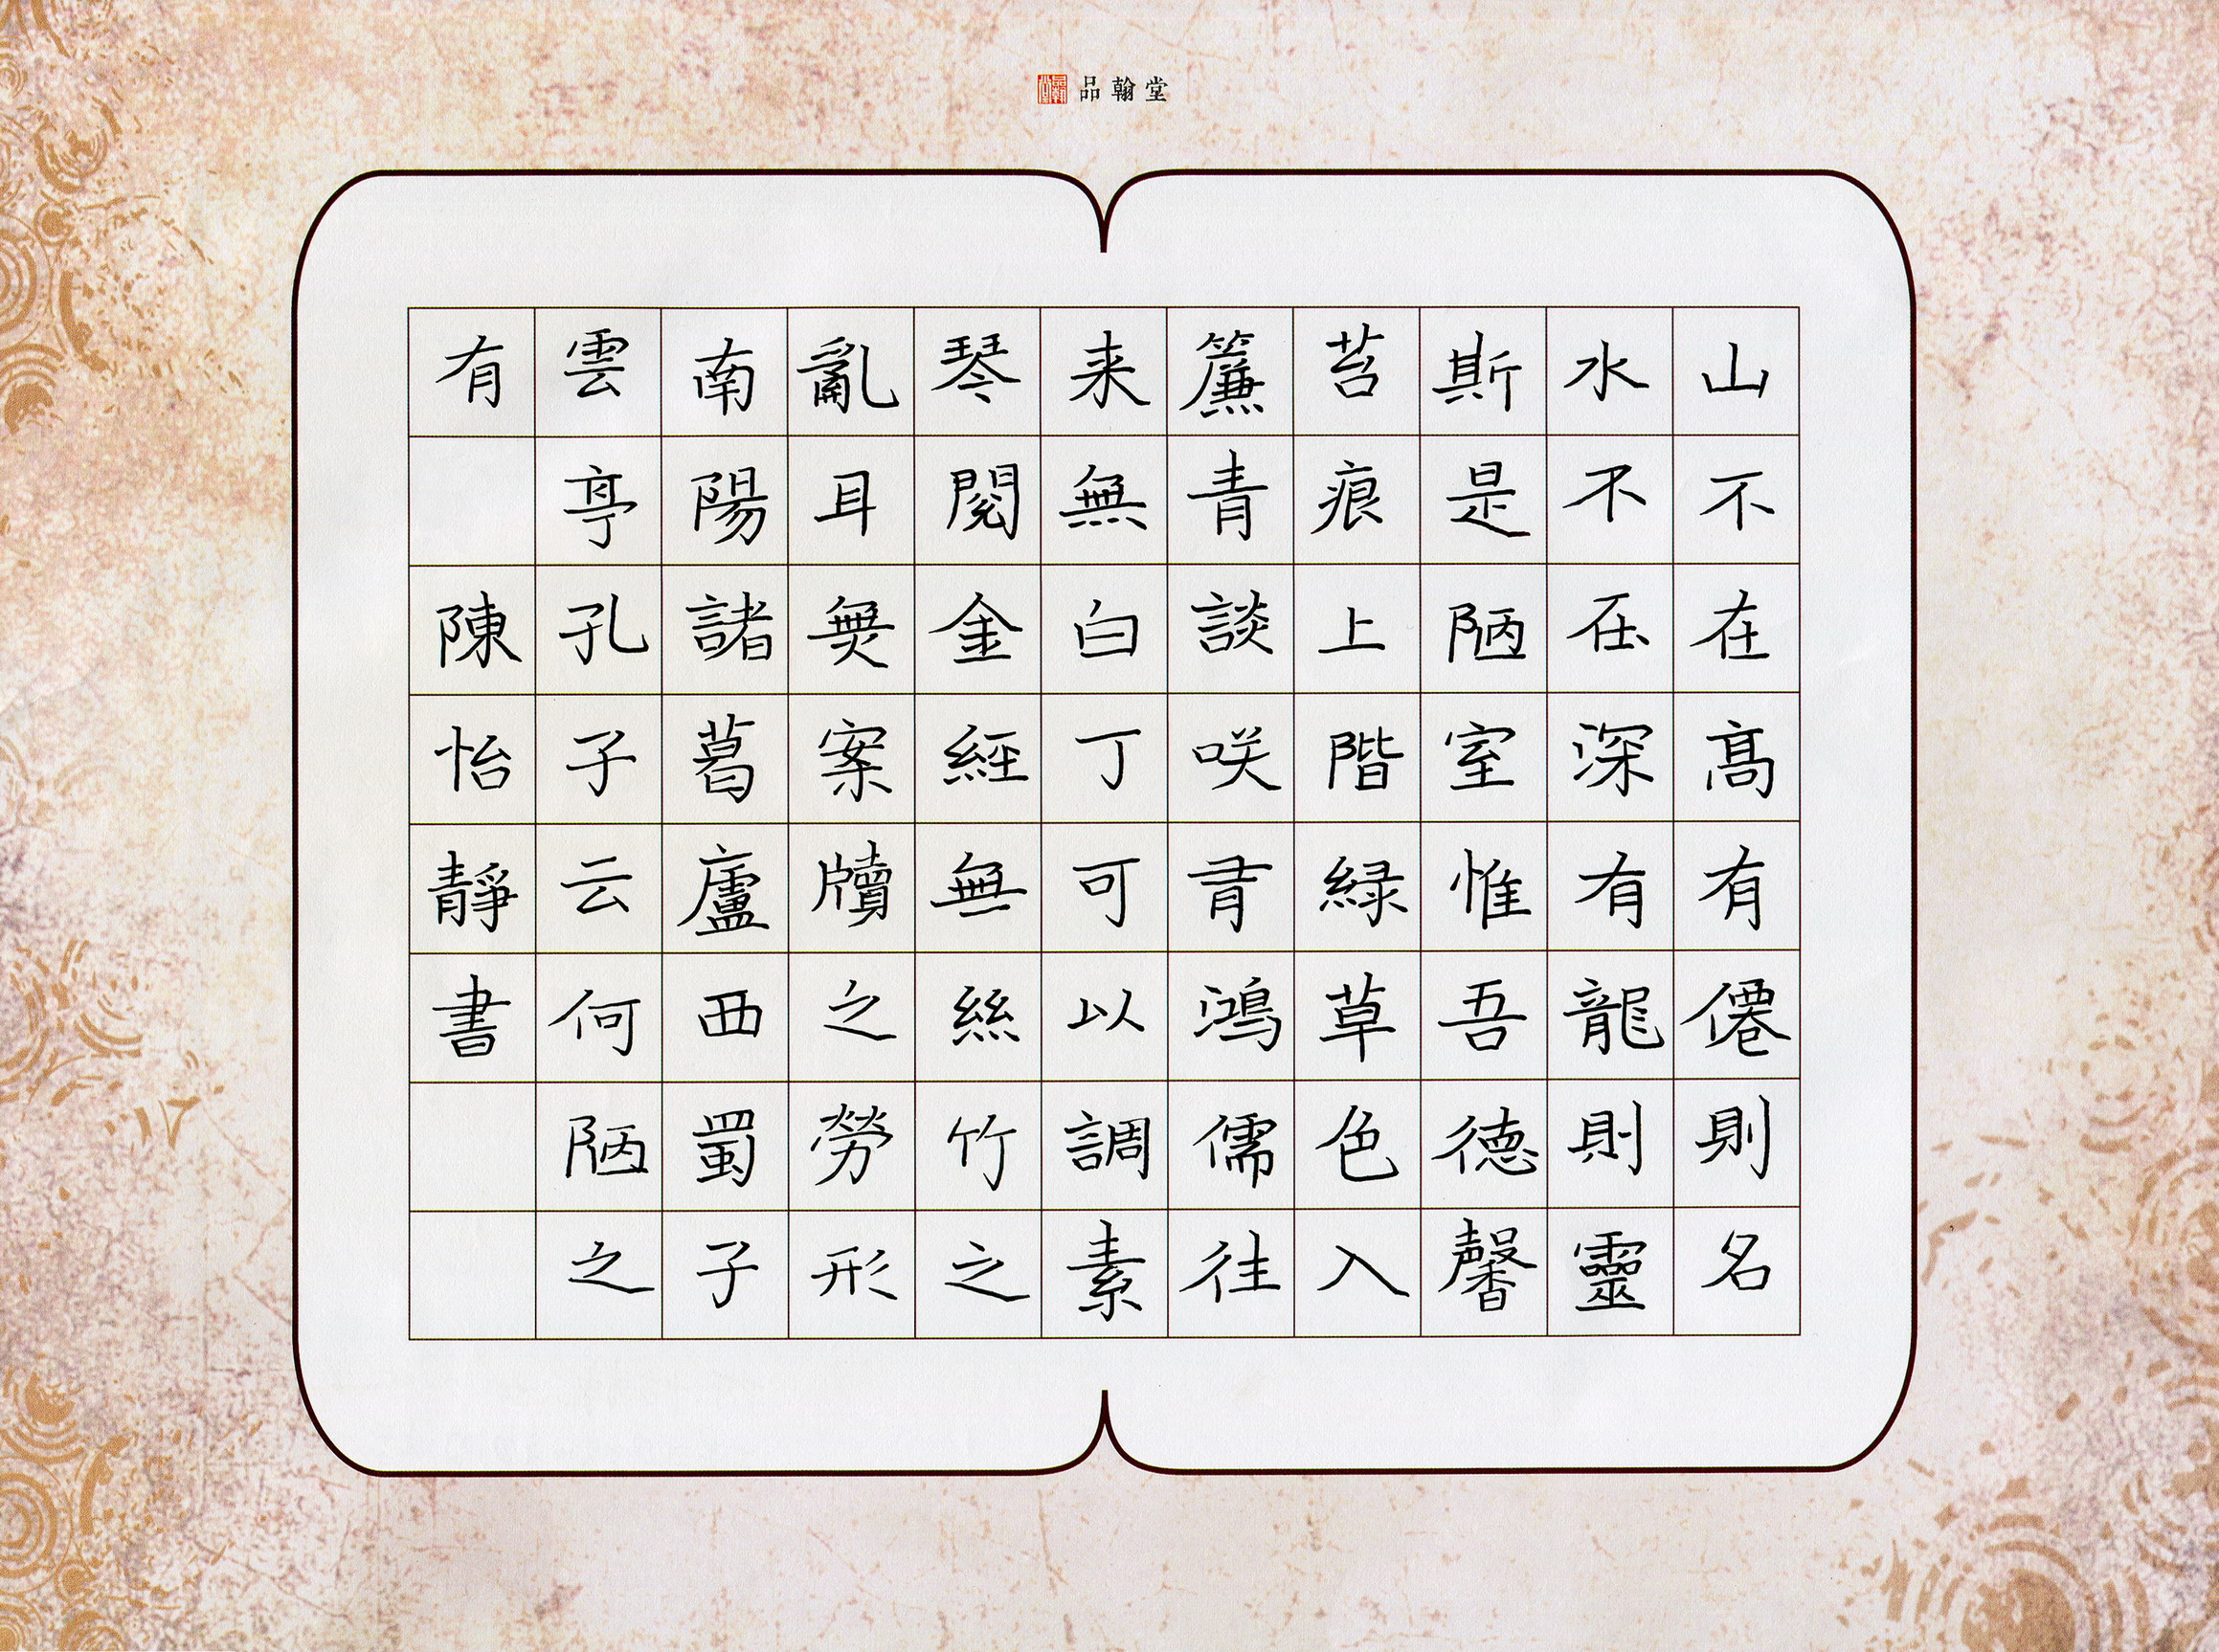 品翰堂
山不在高有僊則名
水不在深有龍則靈
斯是陋室惟吾德馨
苔痕上階緑草色入
簾青談咲有鴻儒往
来無白丁可以調素
琴閱金經無絲竹之
亂耳無案牘之勞形
南陽諸葛廬西蜀子
雲亭孔子云何陋之
有
陳怡靜書